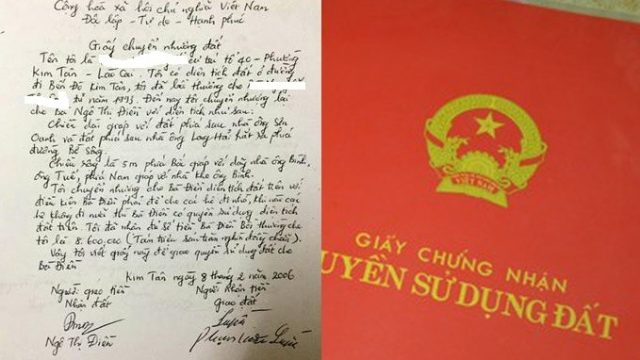 Cộng hòa xã hội chủ nghĩa Việt Nam
Độc lập - Tự do - Hạnh phúc
Giấy chuyển nhượng đất
Tên tôi là cư trú tổ 40 - Phường
Kim Tân - Lào Cai. Tôi có diện tích đất ở đường
đi Bến Đỏ Kim Tân, tôi đã bồi thường cho
từ năm 1993. Đến nay tôi chuyển nhượng lại
cho bà Ngô Thị Điền với diện tích như sau:
Chiều dài giáp với đất phía sau nhà ông
Oanh và đất phía sau nhà ông Long Hải phía
đường Bờ sông.
Chiều rộng là 5m phía Bắc giáp với dãy nhà ông Bình,
ông Tuế, phía Nam giáp với nhà kho ông Bình.
Tôi chuyển nhượng cho Bà Điền diện tích đất trên với
điều kiện Bà Điền phải để cho cái hè đi nhờ, khi nào cái
hè không đi nước thì Bà Điền có quyền sử dụng diện tích
đất trên. Tôi đã nhận đủ số tiền Bà Điền Bồi thường cho
tôi là 8.600.000 (Tám triệu sáu trăm nghìn đồng chẵn).
Vậy tôi viết giấy này để giao quyền sử dụng đất cho
Bà Điền
Kim Tân ngày 8 tháng 2 năm 2006
Người giao tiền
Nhận đất
Người Nhận tiền
Giao đất
Ngô Thị Điền
VIỆT NAM
GIẤY CHỨNG NHẬN
UYỀN SỬ DỤNG ĐẤT